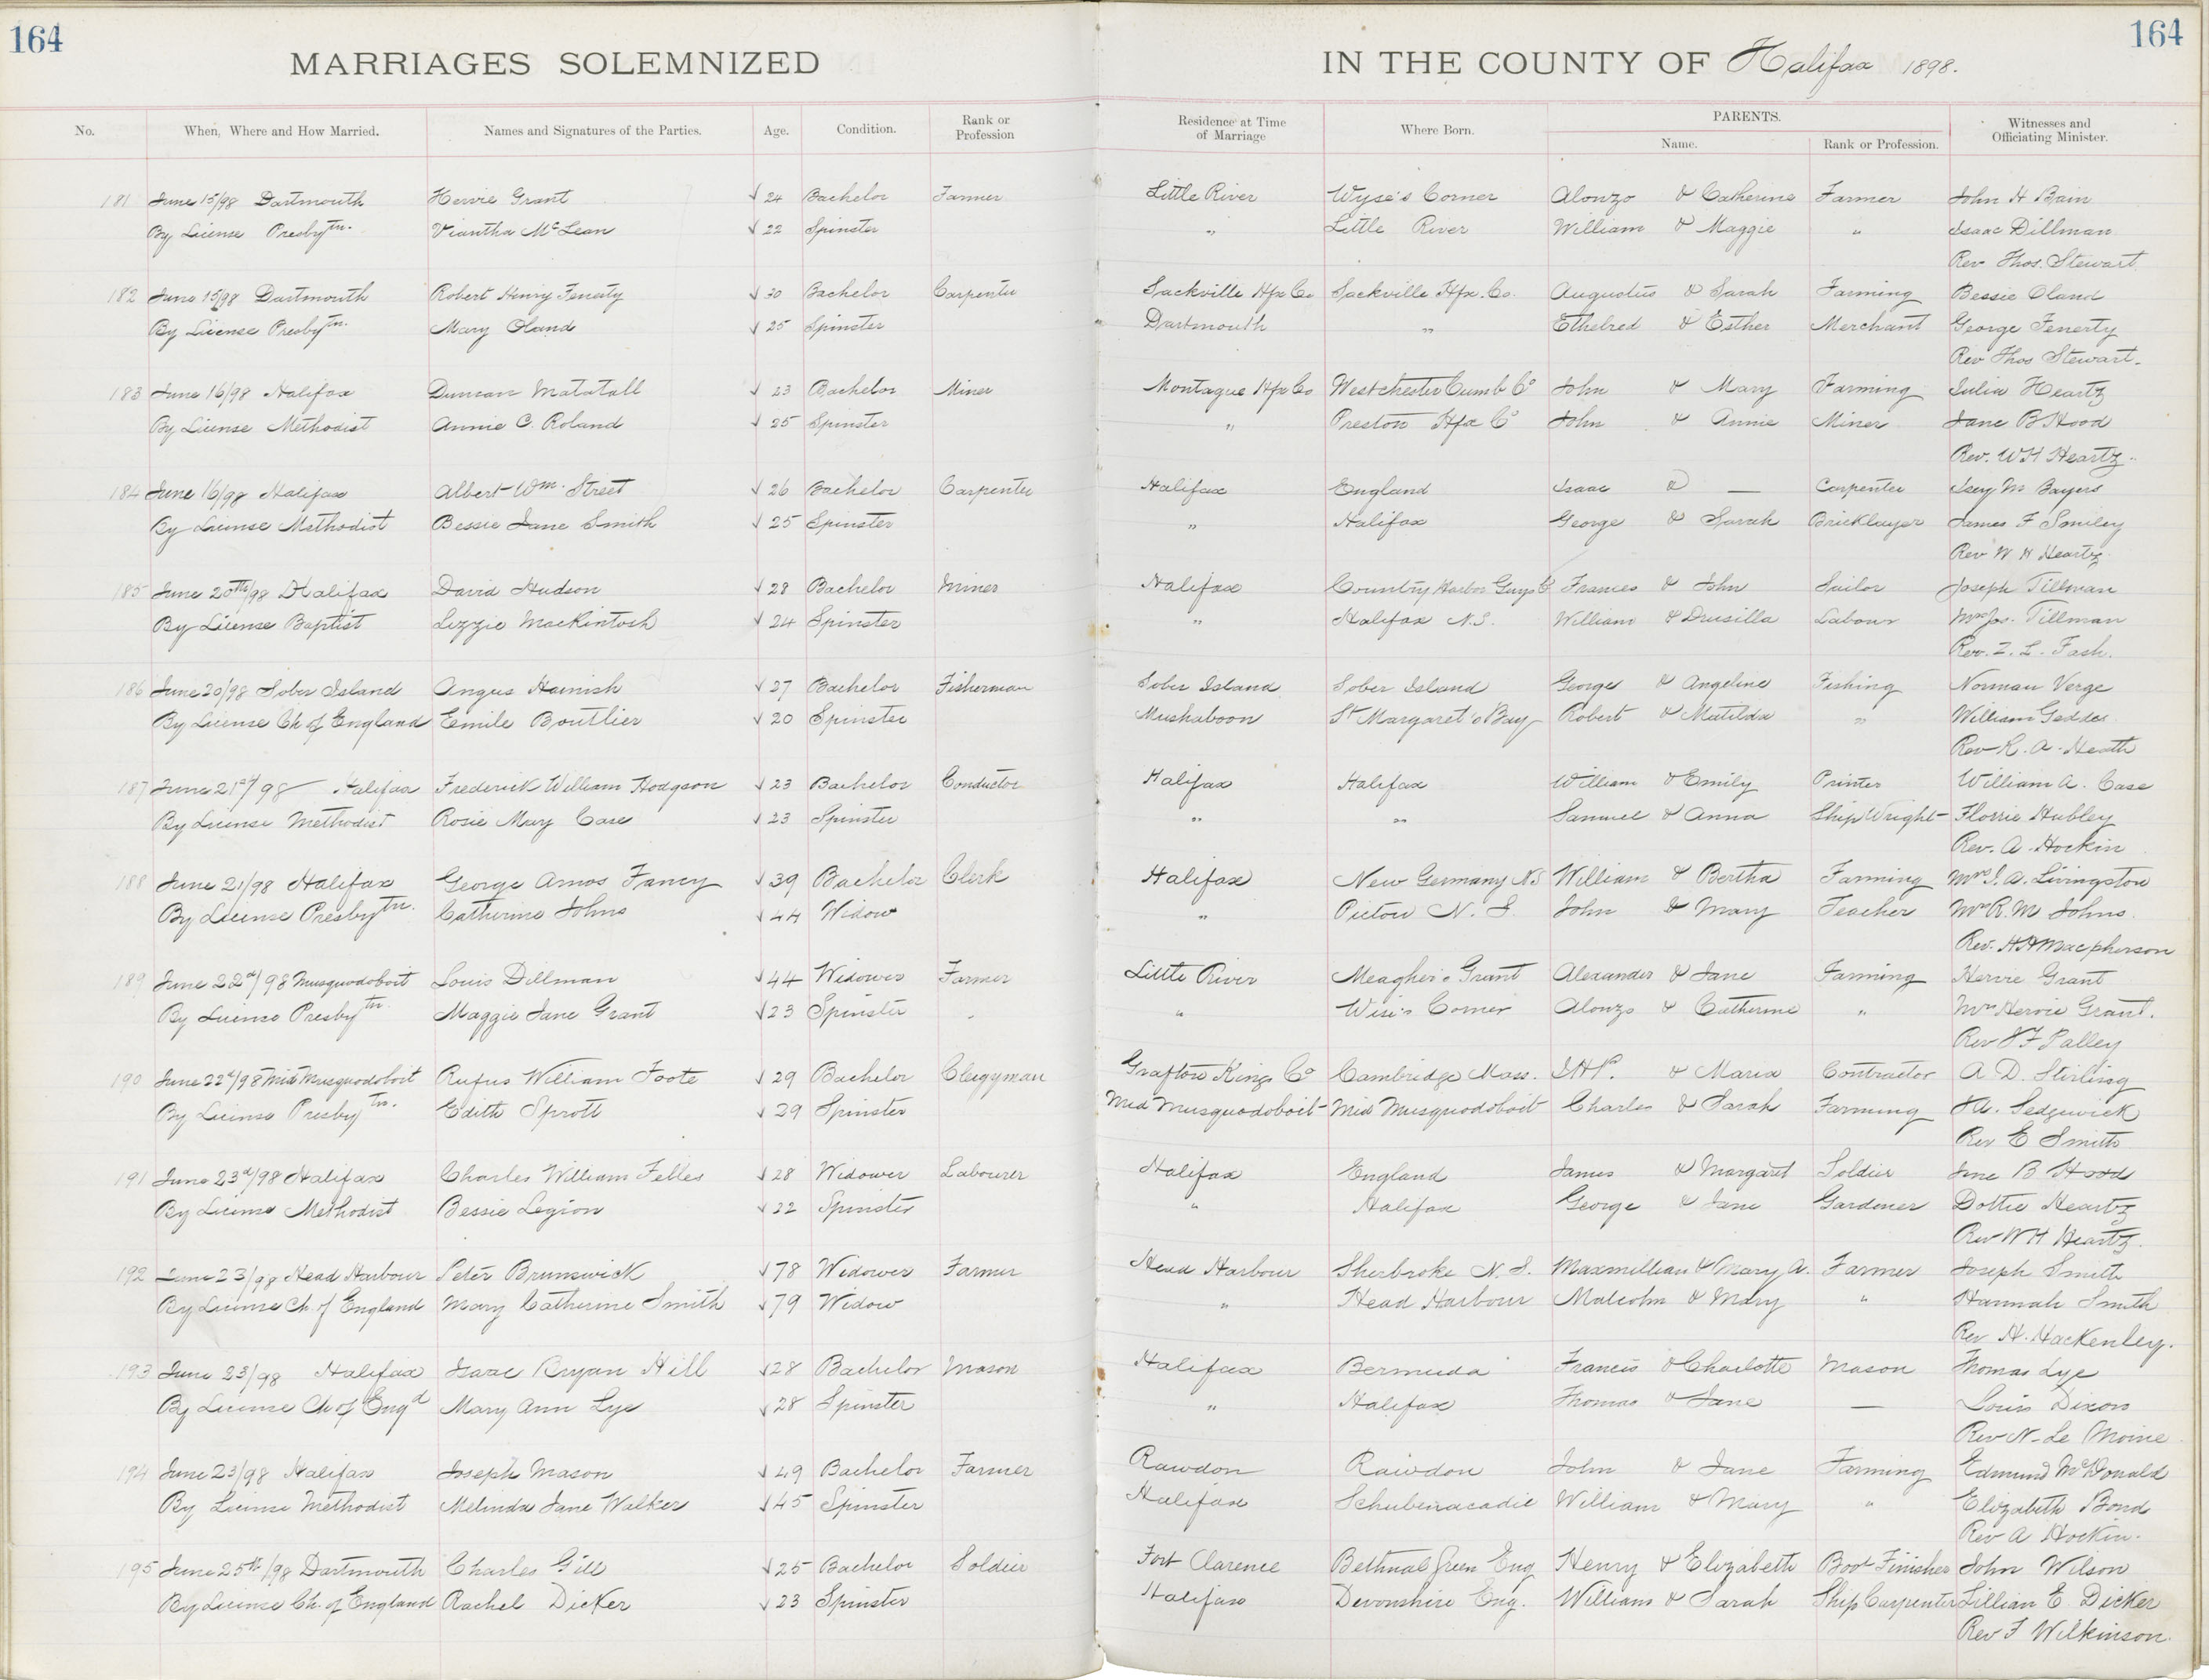 164
164
MARRIAGES SOLEMNIZED IN THE COUNTY OF Halifax 1898.
No. When, Where and How Married. Names and Signatures of the Parties. Age. Condition. Rank or Profession Residence at Time of Marriage Where Born. PARENTS. Name. Rank or Profession. Witnesses and Officiating Minister.
181 June 15/98 Dartmouth Hervie Grant √ 24 Bachelor Farmer Little River Wyse's Corner Alonzo & Catherine Farmer John H Bain
By License Presbytn. Viantha McLean √ 22 Spinster " Little River William & Maggie " Isaac Dillman
Rev Thos. Stewart
182 June 15/98 Dartmouth Robert Henry Fenerty √ 30 Bachelor Carpenter Sackville Hfx Co Sackville Hfx. Co. Augustus & Sarah Farming Bessie Oland
By License Presbytn. Mary Oland √ 25 Spinster Dartmouth " Ethelred & Esther Merchant George Fenerty
Rev Thos Stewart.
183 June 16/98 Halifax Duncan Matatall √ 23 Bachelor Miner Montague Hfx Co Westchester Cumb Co John & Mary Farming Julia Heartz
By License Methodist Annie C. Roland √ 25 Spinster " Preston Hfx Co John & Annie Miner Jane B Hood
Rev. W H Heartz.
184 June 16/98 Halifax Albert Wm. Street √ 26 Bachelor Carpenter Halifax England Isaac & — Carpenter M Bayers
By License Methodist Bessie Jane Smith √ 25 Spinster " Halifax George & Sarah Bricklayer James F Smiley
Rev W H Heartz
185 June 20th/98 Halifax David Hudson √ 28 Bachelor Miner Halifax Country Harbor Guys Co Frances & John Sailor Joseph Tillman
By License Baptist Lizzie Mackintosh √ 24 Spinster " Halifax N.S. William & Drusilla Labour Mrs Jos. Tillman
Rev. Z. L. Fash.
186 June 20/98 Sober Island Angus Harnish √ 27 Bachelor Fisherman Sober Island Sober Island George & Angeline Fishing Norman Verge
By License Ch of England Esmile Boutlier √ 20 Spinster Mushaboon St Margaret's Bay Robert & Matilda " William Geddes
Rev R. A. Heath
187 June 21st/98 Halifax Frederick William Hodgson √ 23 Bachelor Conductor Halifax Halifax William & Emily Printer William A. Case
By License Methodist Rosie May Case √ 23 Spinster " " Samuel & Anna Ship Wright Florrie Hubley
Rev. A. Hockin
188 June 21/98 Halifax George Amos Fancy √ 39 Bachelor Clerk Halifax New Germany N.S William & Bertha Farming Mrs J. A. Livingston
By License Presbytn. Catherine Johns √ 44 Widow " Pictou N. S. John & Mary Teacher Mrs R. M Johns.
Rev. H H Macpherson
189 June 22d/98 Musquodoboit Louis Dillman √ 44 Widower Farmer Little River Meagher's Grant Alexander & Jane Farming Hervie Grant
By License Presbytn. Maggie Jane Grant √ 23 Spinster " Wise's Corner Alonzo & Catherine " Mrs Hervie Grant.
Rev Palley
190 June 22d/98 Mid Musquodoboit Rufus William Foote √ 29 Bachelor Clergyman Grafton Kings Co Cambridge Mass. & Maria Contractor A D. Stirling
By License Presbytn. Edith Sprott √ 29 Spinster Mid Musquodoboit Mid Musquodoboit Charles & Sarah Farming Sedgewick
Rev E Smith
191 June 23d/98 Halifax Charles William Felles √ 28 Widower Labourer Halifax England James & Margaret Soldier Jane B Hood
By License Methodist Bessie Legion √ 22 Spinster " Halifax George & Jane Gardener Dottie Heartz
Rev W H Heartz.
192 June 23/98 Head Harbour Peter Brunswick √ 78 Widower Farmer Head Harbour Sherbroke N. S. Maxmillian & Mary A. Farmer Joseph Smith
By License Ch. of England Mary Catherine Smith √ 79 Widow " Head Harbour Malcolm & Mary " Hannah Smith
Rev H. Hackenley.
193 June 23/98 Halifax Isaac Bryan Hill √ 28 Bachelor Mason Halifax Bermuda Francis & Charlotte Mason Thomas Lye
By License Ch of Engd Mary Ann Lye √ 28 Spinster " Halifax Thomas & Jane — Louis Dixon
Rev N. Le Moine
194 June 23/98 Halifax Joseph Mason √ 49 Bachelor Farmer Rawdon Rawdon John & Jane Farming Edmund McDonald
By License Methodist Melinda Jane Walker √ 45 Spinster Halifax Schubenacadie William & Mary " Elizabeth Bond
Rev A Hockin.
195 June 25th/98 Dartmouth Charles Gill √ 25 Bachelor Soldier Fort Clarence Bethnal Green Eng Henry & Elizabeth Boot Finisher John Wilson
By License Ch. of England Rachel Dicker √ 23 Spinster Halifax Devonshire Eng. William & Sarah Ship Carpenter Lillian E. Dicker
Rev F Wilkinson.